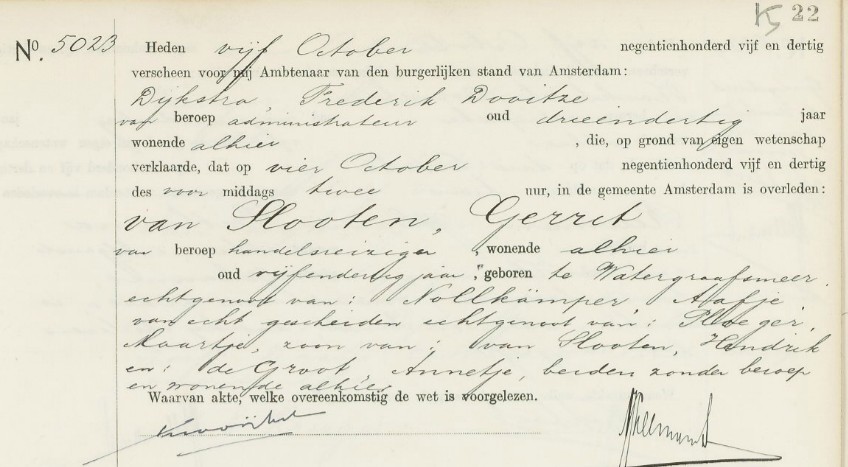 K 22
No. 5023 Heden vijf October negentienhonderd vijf en dertig
verscheen voor mij Ambtenaar van den burgerlijken stand van Amsterdam:
Dijkstra, Frederik Dooitze
van beroep administrateur oud drieëndertig jaar
wonende alhier, die, op grond van eigen wetenschap
verklaarde, dat op vier October negentienhonderd vijf en dertig
des voor middags twee uur, in de gemeente Amsterdam is overleden:
van Slooten, Gerret
van beroep handelsreiziger, wonende alhier
oud vijfendertig jaar, geboren te Watergraafsmeer,
echtgenoot van: Nollkämper, Aafje,
van echt gescheiden echtgenoot van: Ploeger,
Maartje, zoon van: van Slooten, Hendrik
en: de Groot, Annetje, beiden zonder beroep
en wonende alhier
Waarvan akte, welke overeenkomstig de wet is voorgelezen.